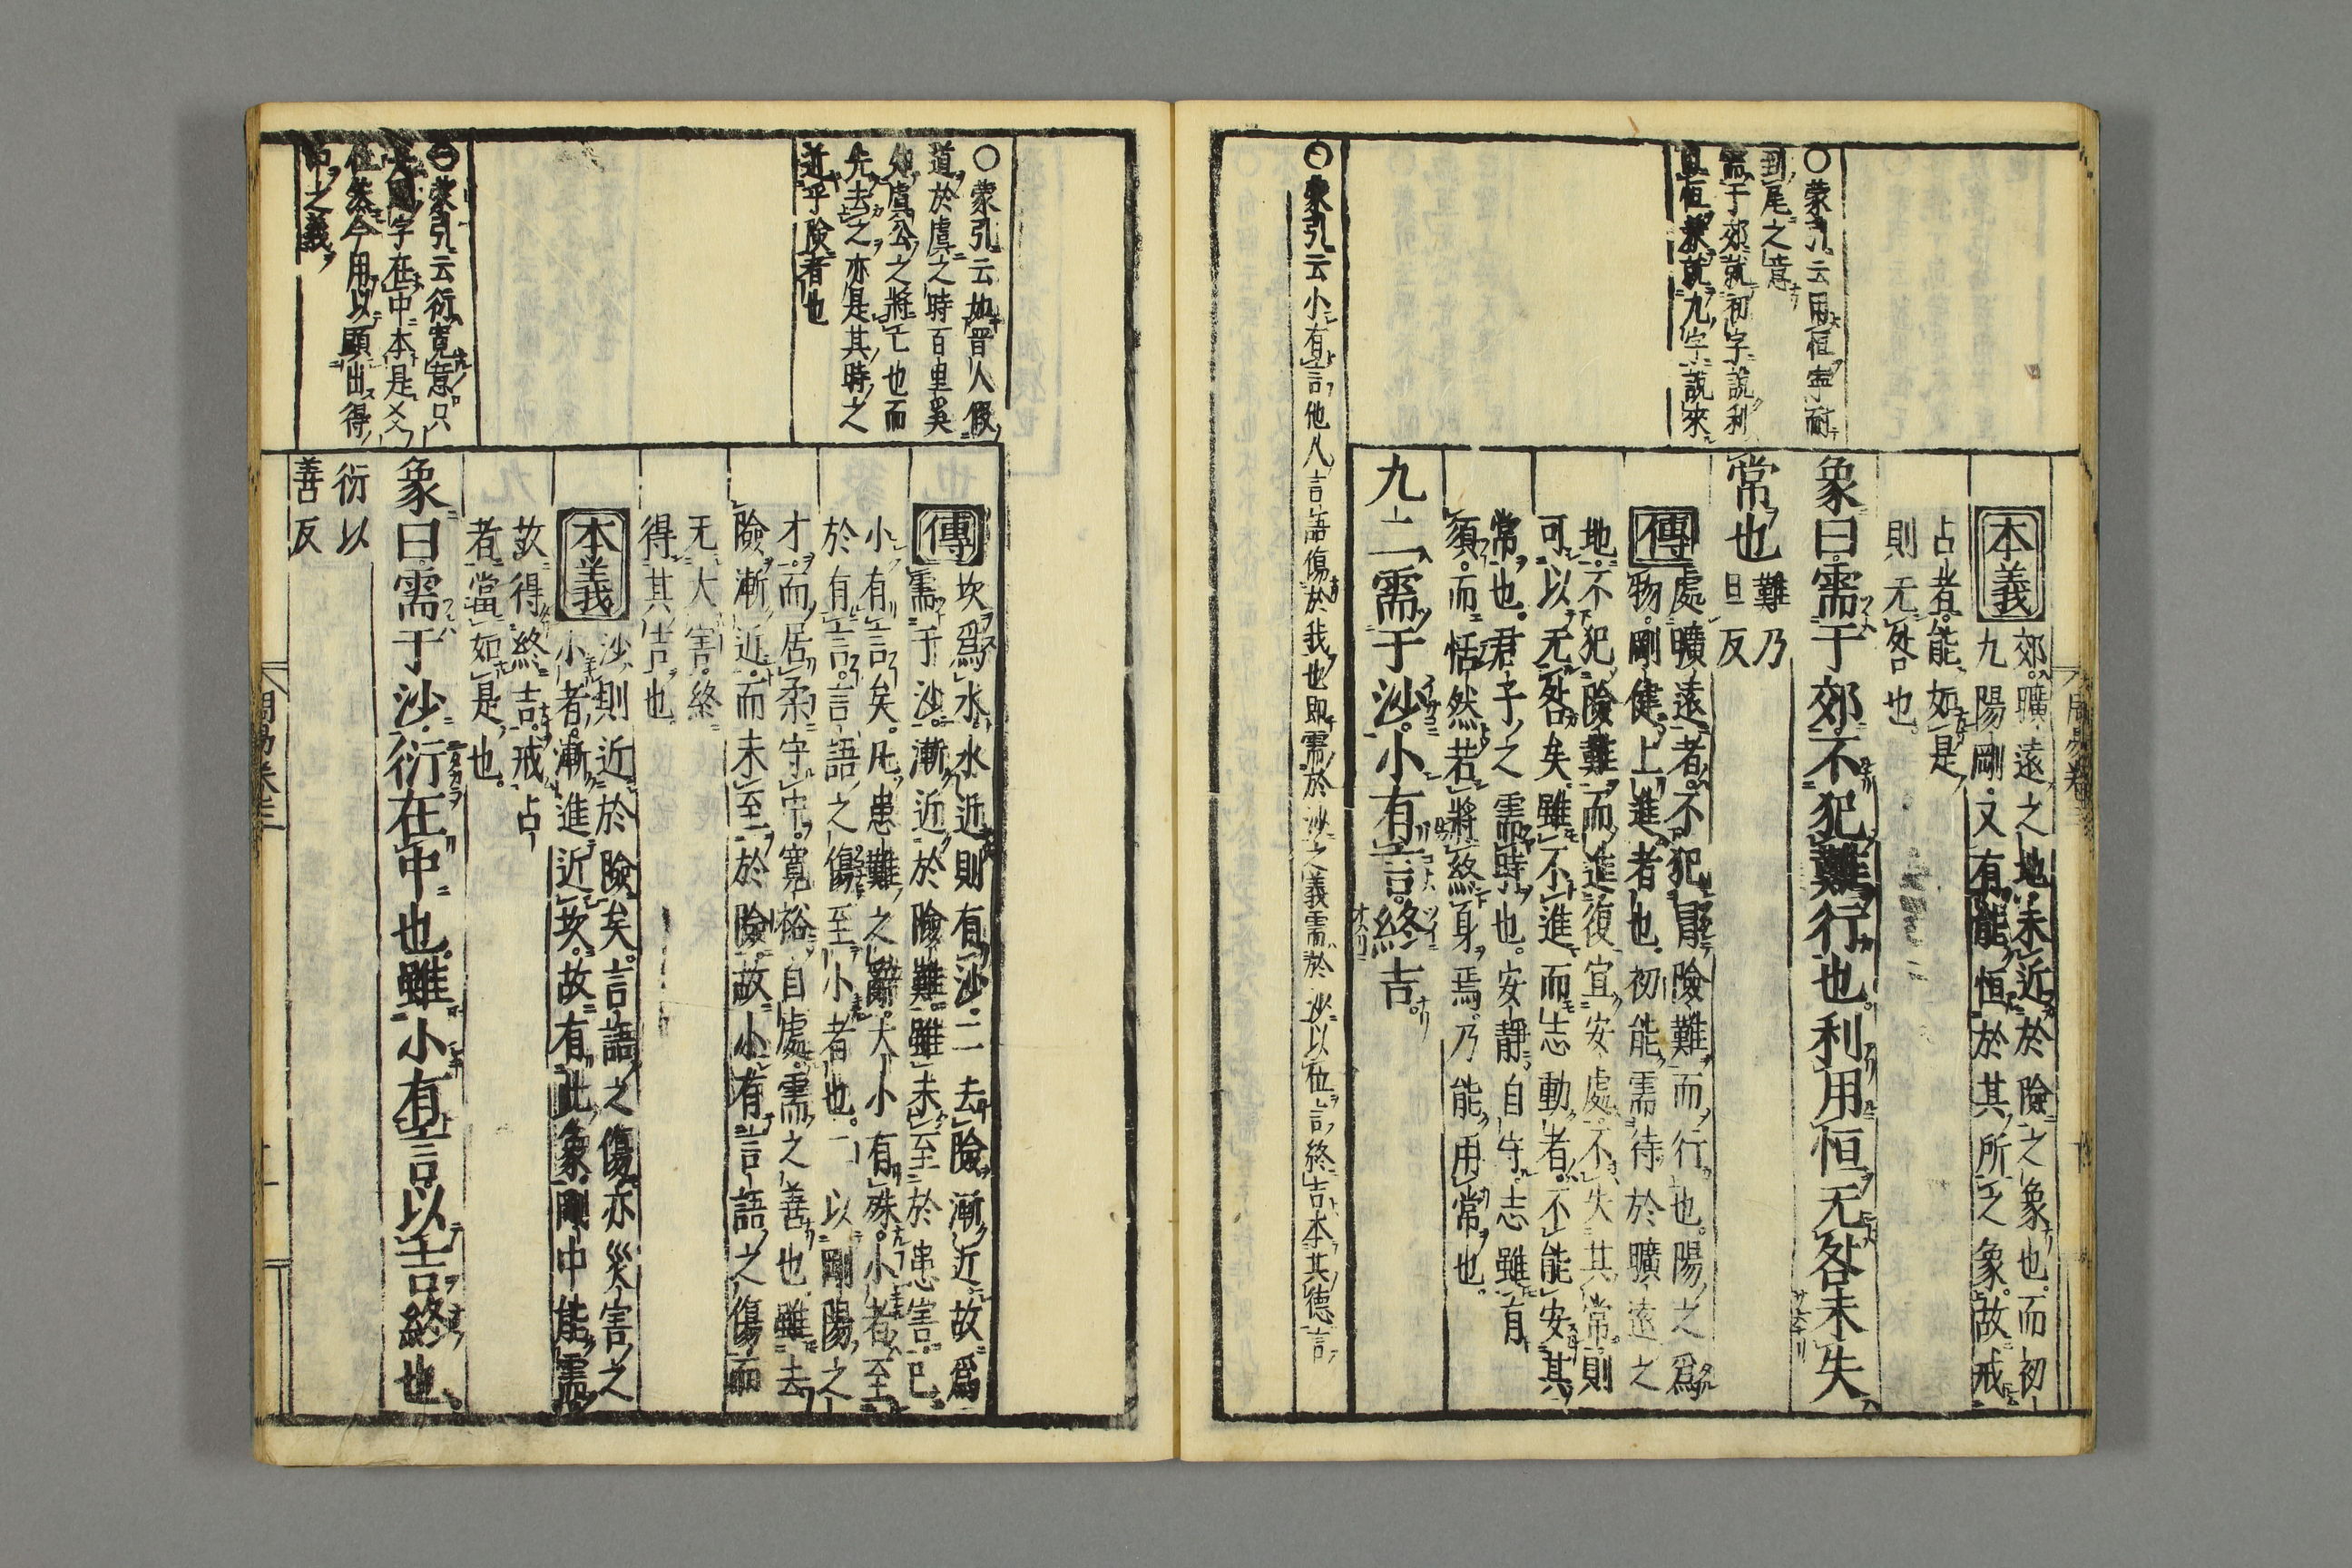 本義
郊曠遠之地未近於險之象也而初
九陽剛又有能恒於其所之象故戒
占者能如是
則无咎也
象曰需于郊不犯難行也利用恒无咎未失
常也
難乃
旦反
傳
處曠遠者不犯冒險難而行也陽之爲
物剛健上進者也初能需待於曠遠之
地不犯險難而進復宜安處不失其常則
可以无咎矣雖不進而志動者不能安其
常也君子之需時也安靜自守志雖有
須而恬然若將終身焉乃能用常也
九二需于沙小有言終吉
○蒙引云用恒寧耐
到尾之意
需于郊就初字說利
用恒就九字說來
○蒙引云小有言他人言語傷於我也即需於沙之義需於沙以位言終吉本其德言
傳
坎爲水水近則有沙二去險漸近故爲
需于沙漸近於險難雖未至於患害已
小有言矣凡患難之辭大小有殊小者至
於有言言語之傷至小者也二以剛陽之
才而居柔守中寬裕自處需之善也雖去
險漸近而未至於險故小有言語之傷而
无大害終
得其吉也
本義
沙則近於險矣言語之傷亦災害之
小者漸進近坎故有此象剛中能需
故得終吉戒占
者當如是也
象曰需于沙衍在中也雖小有言以吉終也
衍以
善反
○蒙引云如晉人假
道於虞之時百里奚
知虞公之將亡也而
先去之亦是其時之
近乎險者也
○蒙引云衍寬意只
是剛字在中本是爻
位然今用以顯出得
中之義
周易卷三